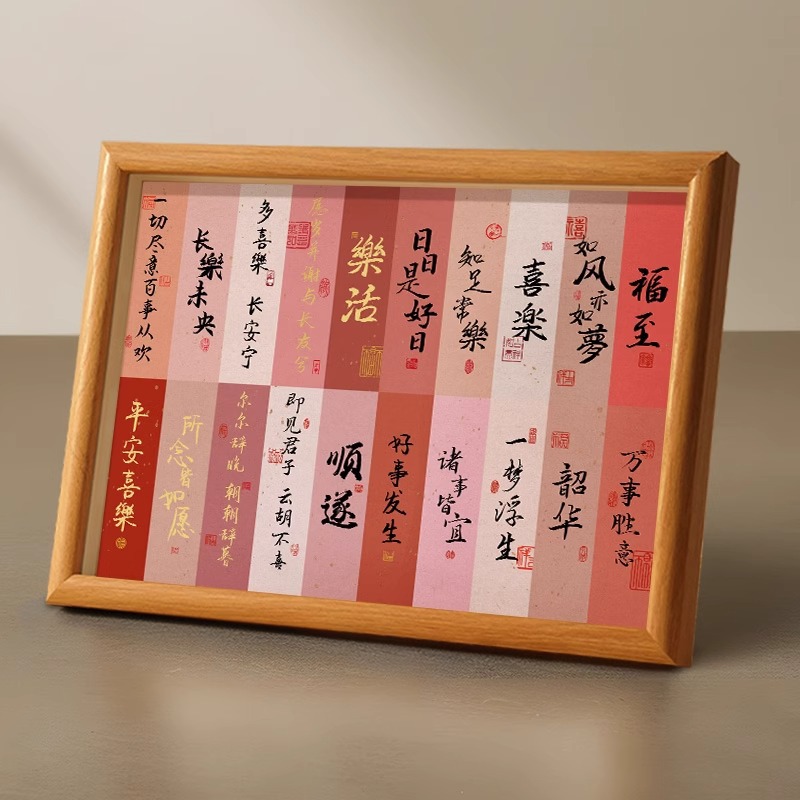 一切尽意百事从欢
长樂未央
多喜樂 长安宁
愿岁并谢与长友兮
樂活
日日是好日
知足常樂
喜楽
如风亦如夢
福至
平安喜樂
所念皆如愿
尔尔辞晚 朝朝辞暮
即见君子 云胡不喜
顺遂
好事发生
诸事皆宜
一梦浮生
韶华
万事胜意